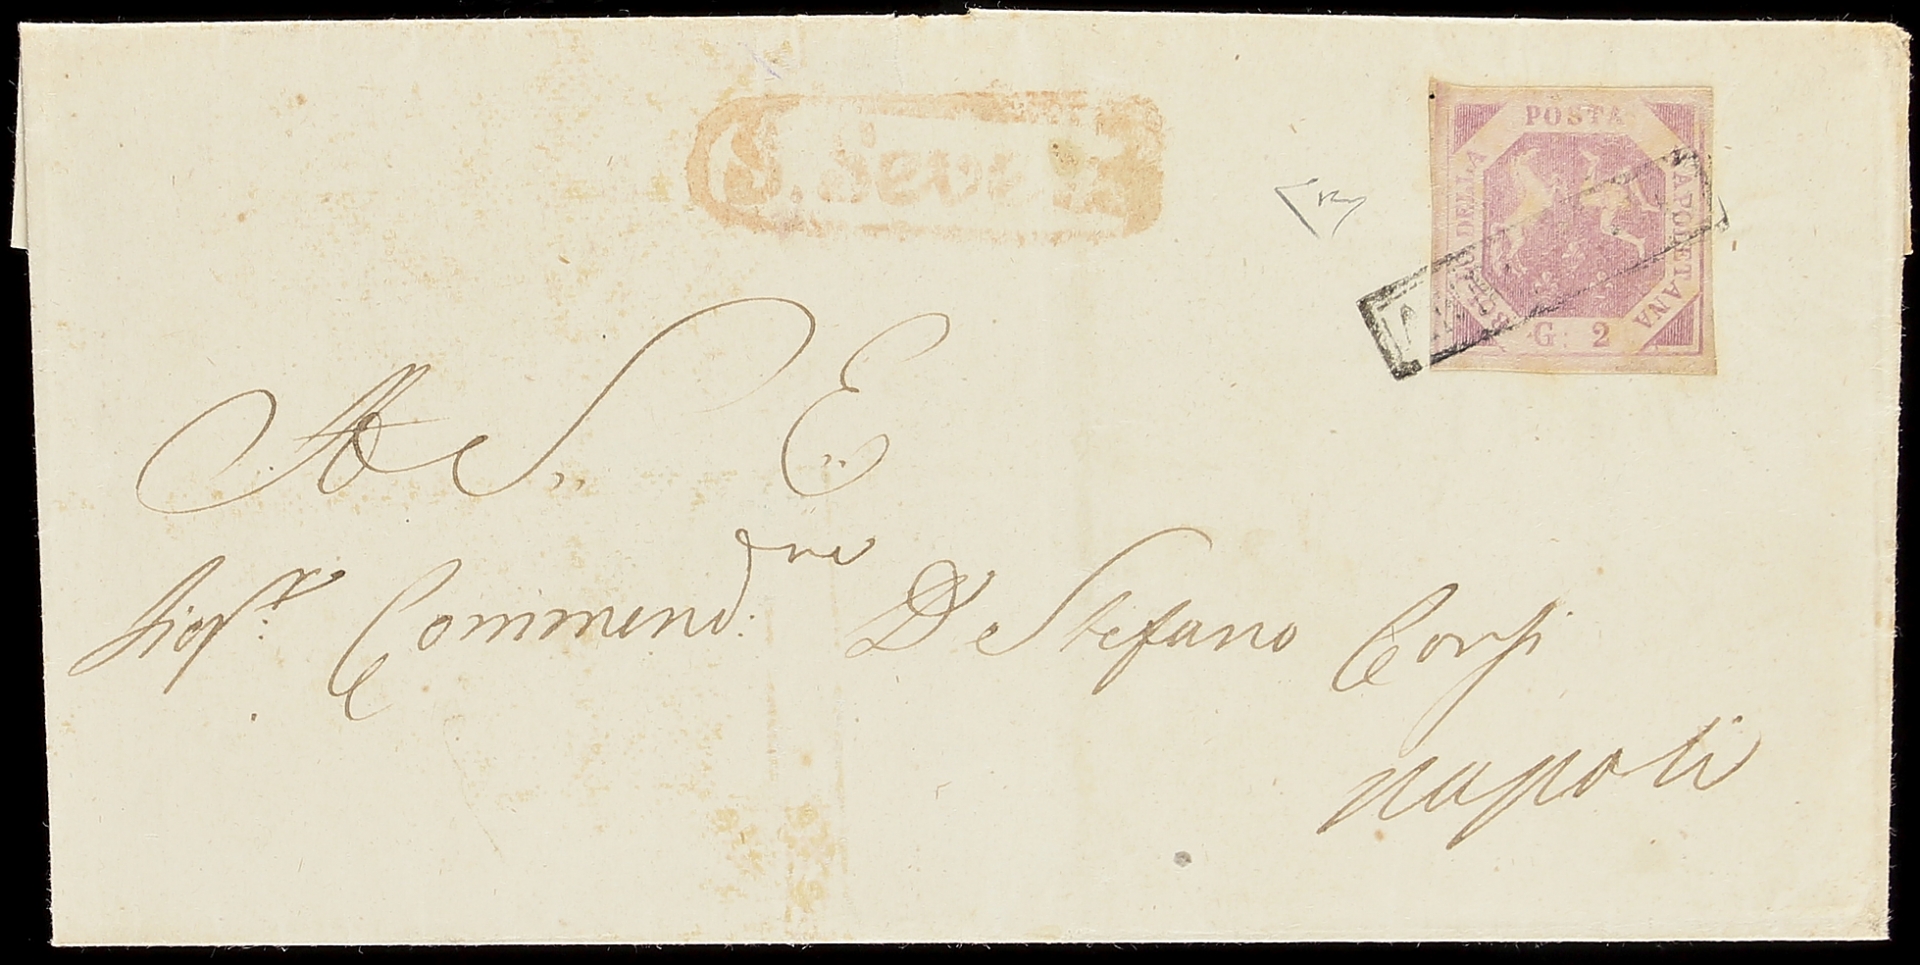 S. Severo
POSTA
NAPOLETANA
DELLA
BOLLO
G. 2
A S. E.
Sigr. Commend:re De Stefano Corsi
Napoli